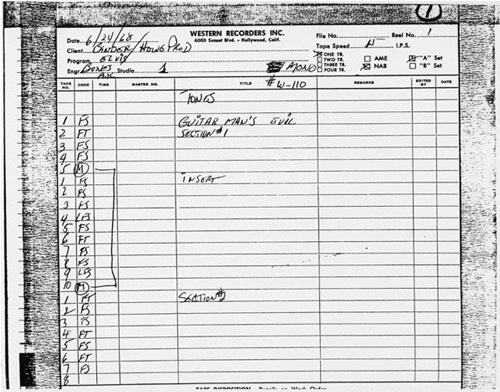 1
WESTERN RECORDERS INC.
6000 Sunset Blvd. - Hollywood, Calif.
Date 6/24/68
File No. Reel No. 1
Client BINDER/HOWE PROD
Tape Speed I.P.S.
Program ELVIS
ONE TR. AME "A" Set
TWO TR.
Engr BONES Studio 1 MONO
THREE TR. NAB "B" Set
FOUR TR.
#W-110
TAKE NO. CODE TIME MASTER NO. TITLE REMARKS EDITED BY DATE
TONES
1 FS GUITAR MAN'S EVIL
2 FT SECTION #1
3 FS
4 FS
5 M
1 FS INSERT
2 FS
3 FS
4 LFS
5 FS
6 FT
7 FS
8 FS
9 LFS
10 M
1 FT SECTION
2 FS
3 FS
4 FT
5 FS
6 FT
7 FS
8